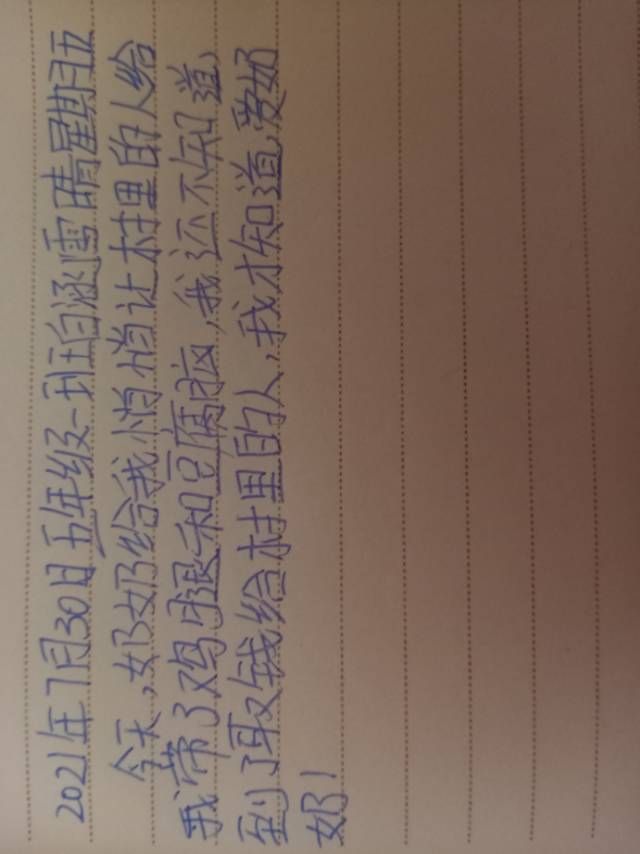 2021年7月30日五年级一班白涵雪晴星期五
今天,奶奶给我悄悄让村里的人给
我带了鸡腿和豆腐脑,我还不知道,
到了取钱给村里的人,我才知道,爱奶
奶!